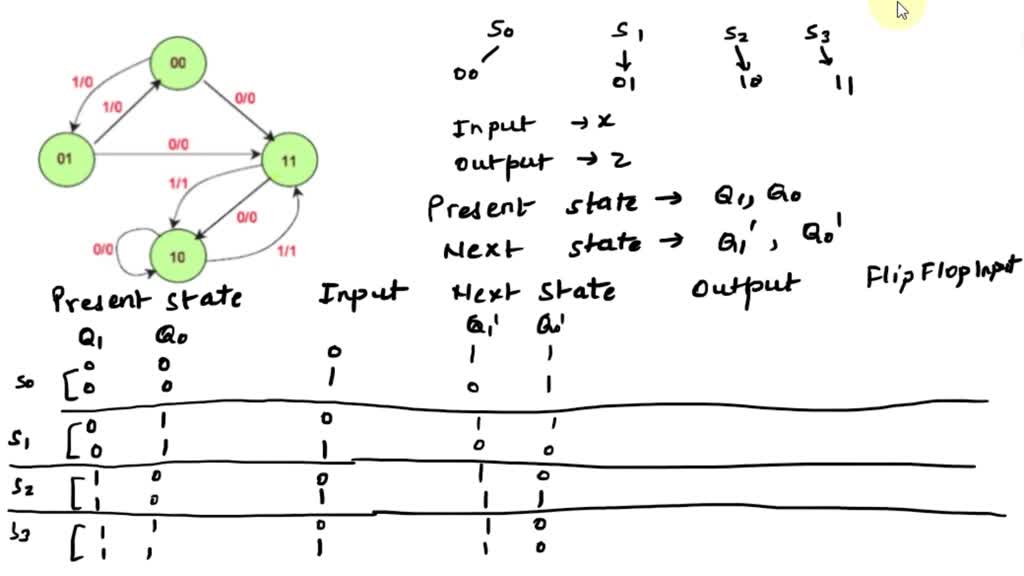 00
1/0
1/0
0/0
01
0/0
11
1/1
0/0
0/0
10
1/1
S0 S1 S2 S3
00 01 10 11
Input → x
Output → z
Present state → Q1, Q0
Next state → Q1', Q0'
Present state Input Next State Output FlipFlopInput
Q1 Q0 Q1' Q0'
0 0 0 1 1
S0 [ 0 0 1 0 1
0 1 0 1 1
S1 [ 0 1 1 0 0
S2 [ 1 0 0 1 0
1 0 1 1 1
S3 [ 1 1 0 1 0
1 1 1 1 0